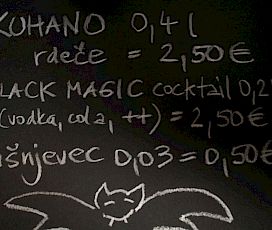 KUHANO 0,4 l
rdeče = 2,50 €
LACK MAGIC cocktail 0,2
(vodka, cola, ++) = 2,50 €
išnjevec 0,03 = 0,50 €